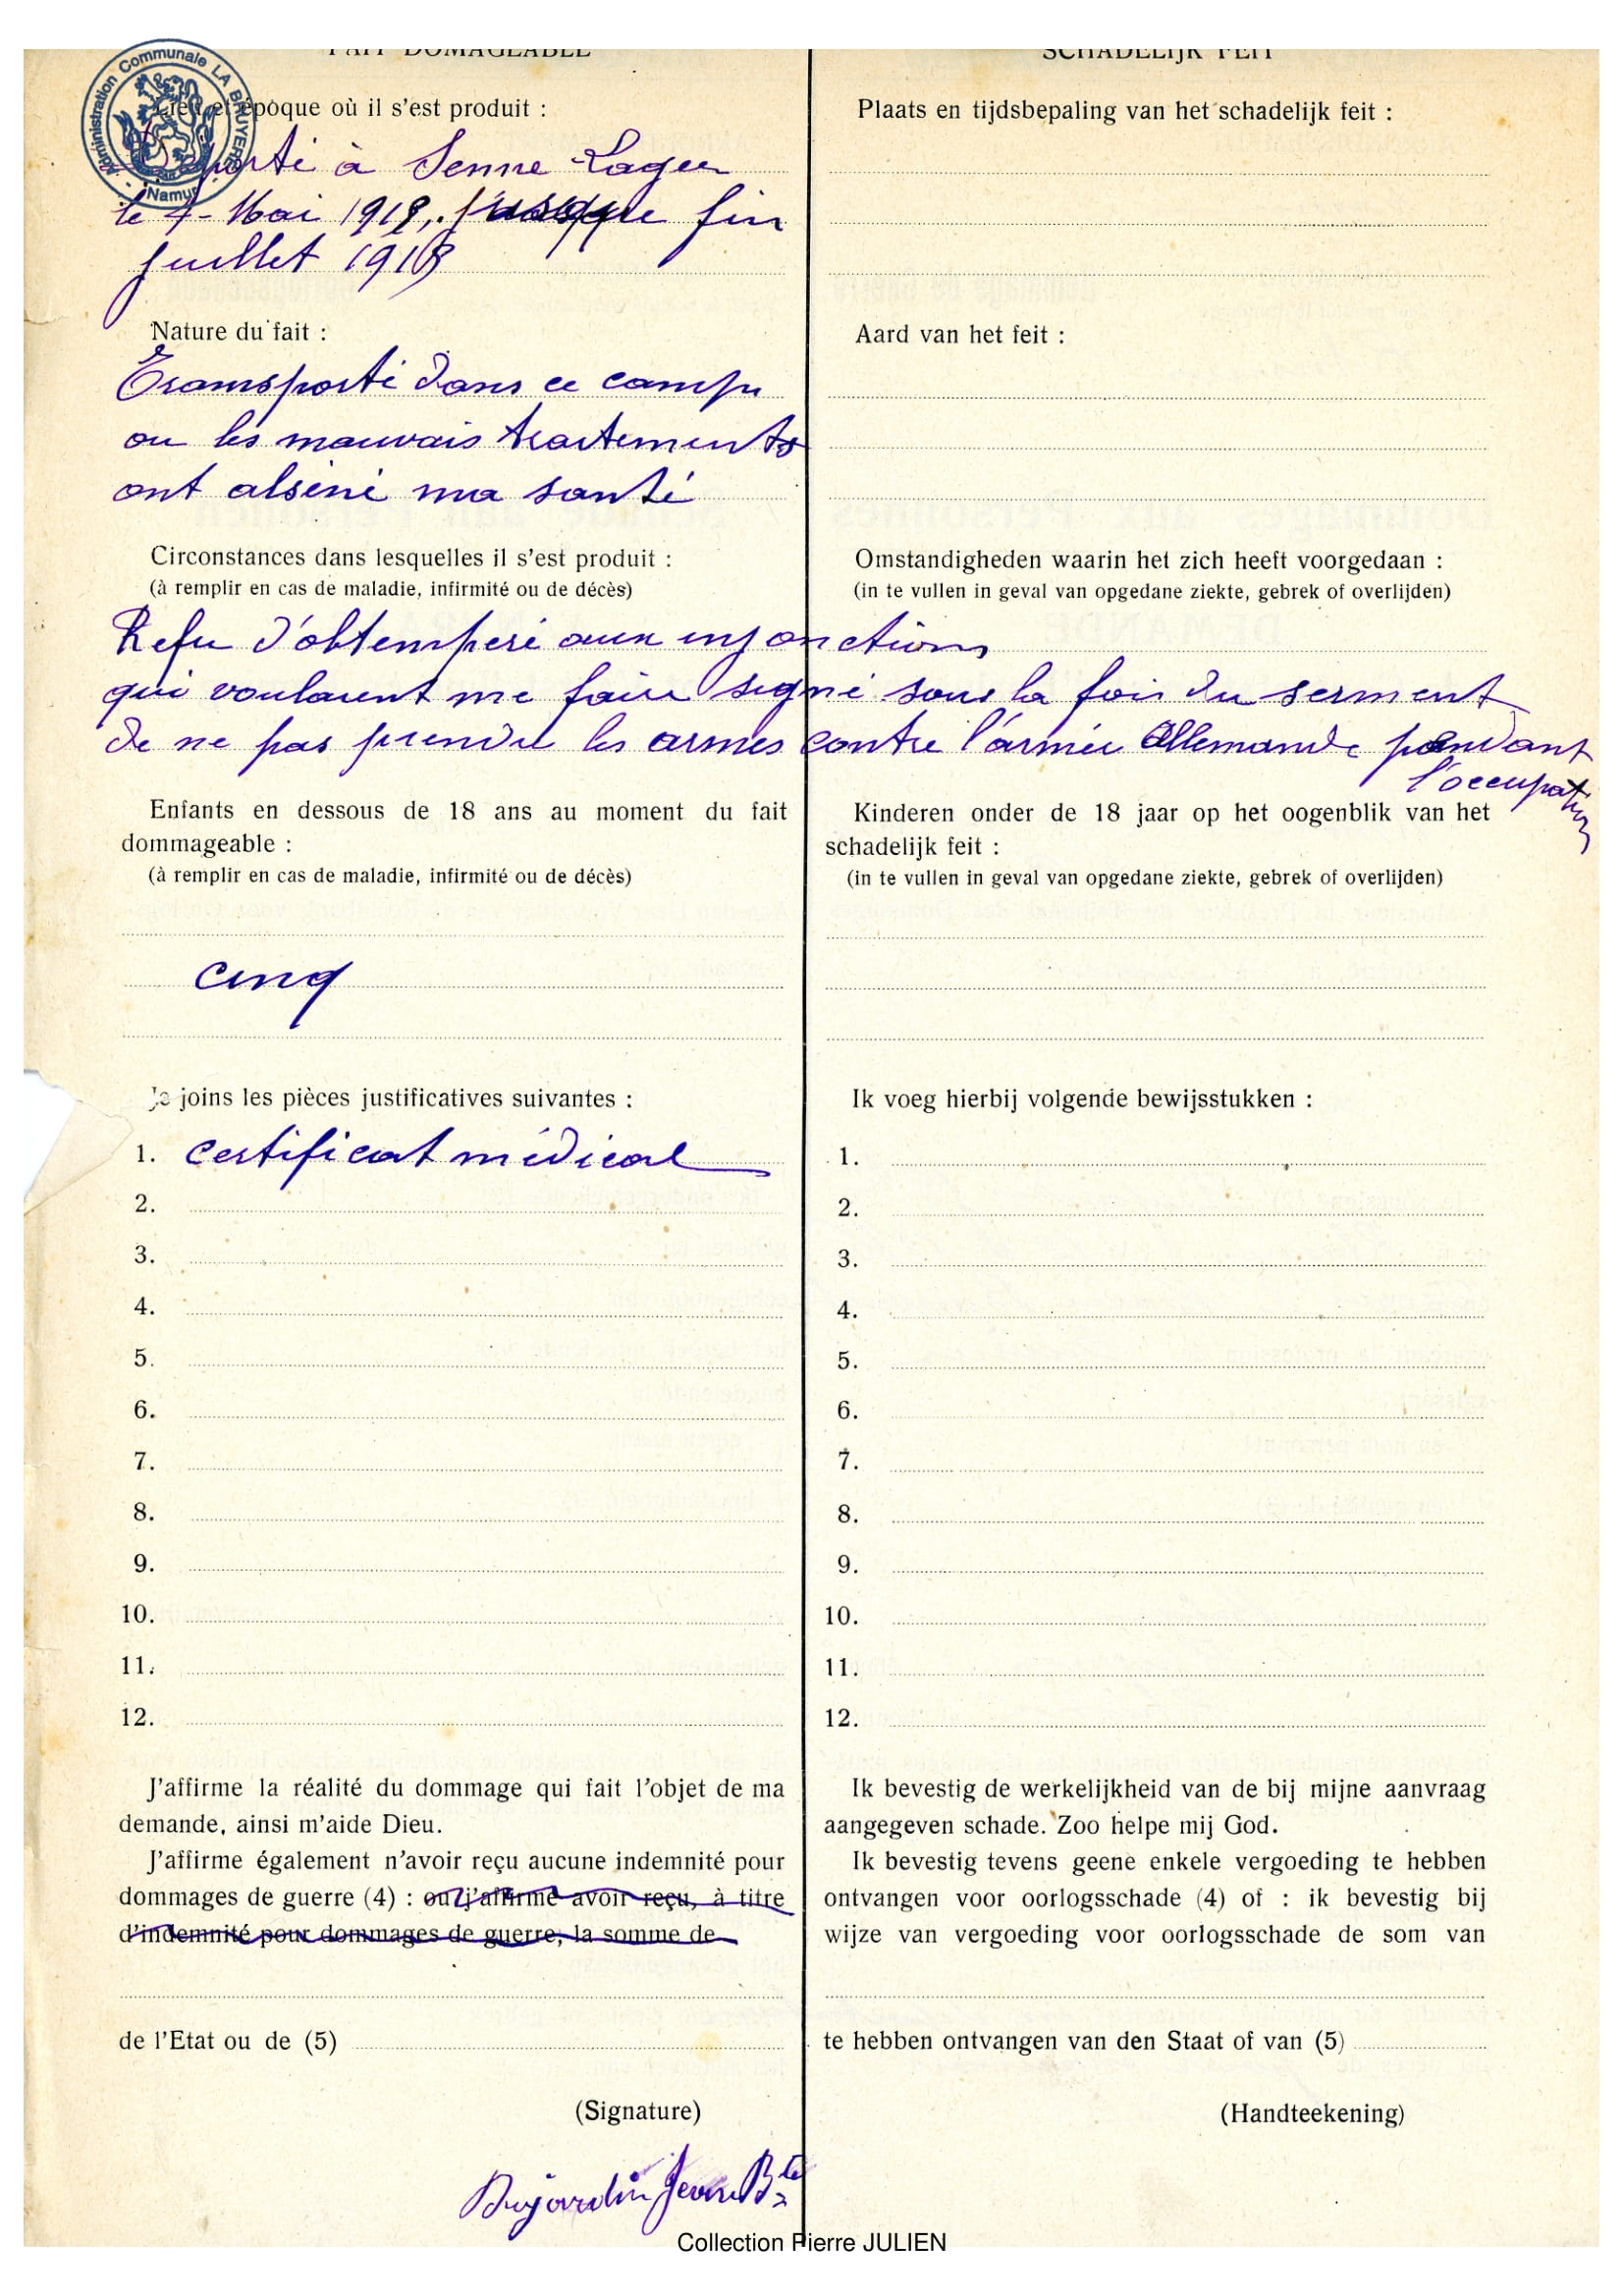 FAIT DOMAGEABLE
Administration Communale LA BRUYERE
Namur
Lieu et époque où il s'est produit :
à Senne Lager
le 7 - Mai 1918, jusque fin
juillet 1918
Nature du fait :
Transporté dans ce camp
ou les mauvais traitements
ont alséné ma santé
Circonstances dans lesquelles il s'est produit :
(à remplir en cas de maladie, infirmité ou de décès)
Refu d'obtempéré aux injonctions
qui voulaient me faire signé sous la foi du serment
de ne pas prendre les armes contre l'armée Allemande pendant
l'occupation
Enfants en dessous de 18 ans au moment du fait
dommageable :
(à remplir en cas de maladie, infirmité ou de décès)
cinq
Je joins les pièces justificatives suivantes :
1. certificat médical
2.
3.
4.
5.
6.
7.
8.
9.
10.
11.
12.
J'affirme la réalité du dommage qui fait l'objet de ma
demande, ainsi m'aide Dieu.
J'affirme également n'avoir reçu aucune indemnité pour
dommages de guerre (4) : ou j'affirme avoir reçu, à titre
d'indemnité pour dommages de guerre, la somme de
de l'Etat ou de (5)
(Signature)
Dujardin Jean Bte
SCHADELIJK FEIT
Plaats en tijdsbepaling van het schadelijk feit :
Aard van het feit :
Omstandigheden waarin het zich heeft voorgedaan :
(in te vullen in geval van opgedane ziekte, gebrek of overlijden)
Kinderen onder de 18 jaar op het oogenblik van het
schadelijk feit :
(in te vullen in geval van opgedane ziekte, gebrek of overlijden)
Ik voeg hierbij volgende bewijsstukken :
1.
2.
3.
4.
5.
6.
7.
8.
9.
10.
11.
12.
Ik bevestig de werkelijkheid van de bij mijne aanvraag
aangegeven schade. Zoo helpe mij God.
Ik bevestig tevens geene enkele vergoeding te hebben
ontvangen voor oorlogsschade (4) of : ik bevestig bij
wijze van vergoeding voor oorlogsschade de som van
te hebben ontvangen van den Staat of van (5)
(Handteekening)
Collection Pierre JULIEN